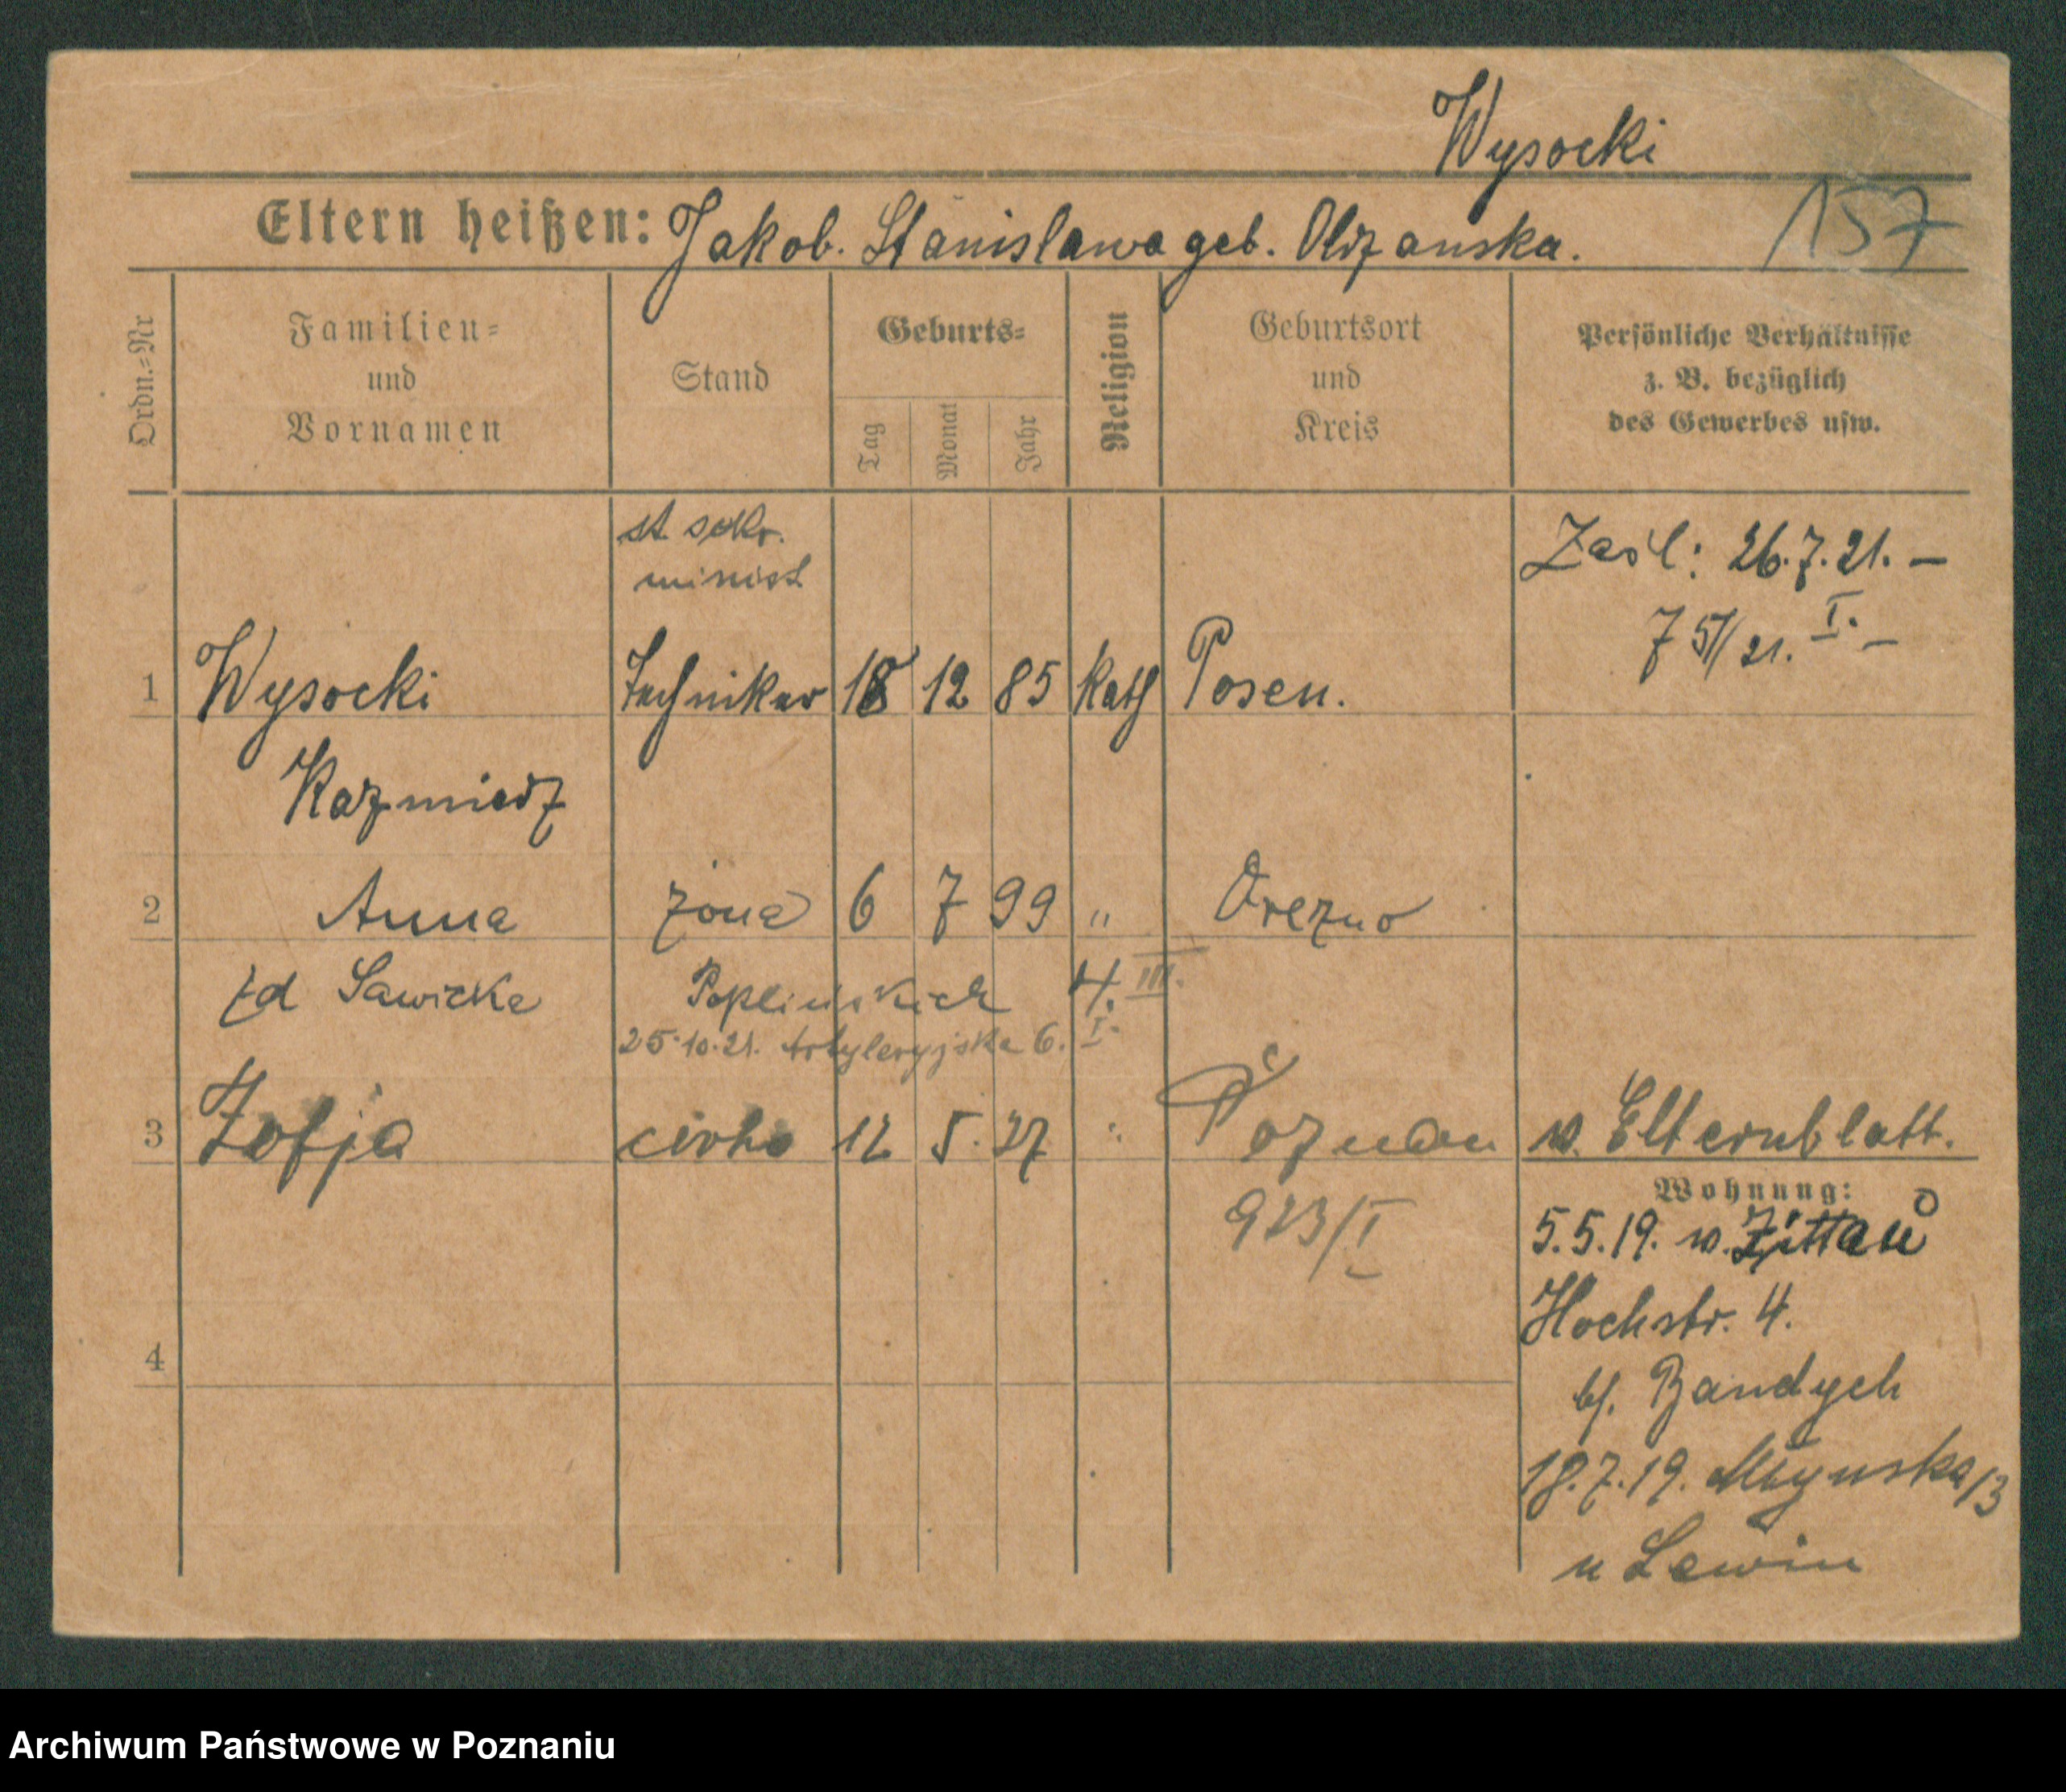 Wysocki
157
Eltern heißen: Jakob. Stanislawa geb. Olszanska.
Ordn.=Nr
Familien=
und
Vornamen
Stand
Geburts=
Tag
Monat
Jahr
Religion
Geburtsort
und
Kreis
Persönliche Verhältnisse
z. B. bezüglich
des Gewerbes usw.
st sekr.
minist
Zaśl: 26.7.21. –
I. –
1 Wysocki Techniker 18 12 85 Kath Posen.
Kazmierz
2 Anna żona 6 7 99 "
zd Sawicka Poplińskich 4. III.
25.10.21. Artyleryjska 6. I.
3 Zofja córka 12 5. 27 " Poznań w. Elternblatt.
923/I
Wohnung:
5.5.19. w. Zittau
Hochstr. 4.
bf. Bandych
18.7.19. Młyńska 13
u Lewin
4
Archiwum Państwowe w Poznaniu